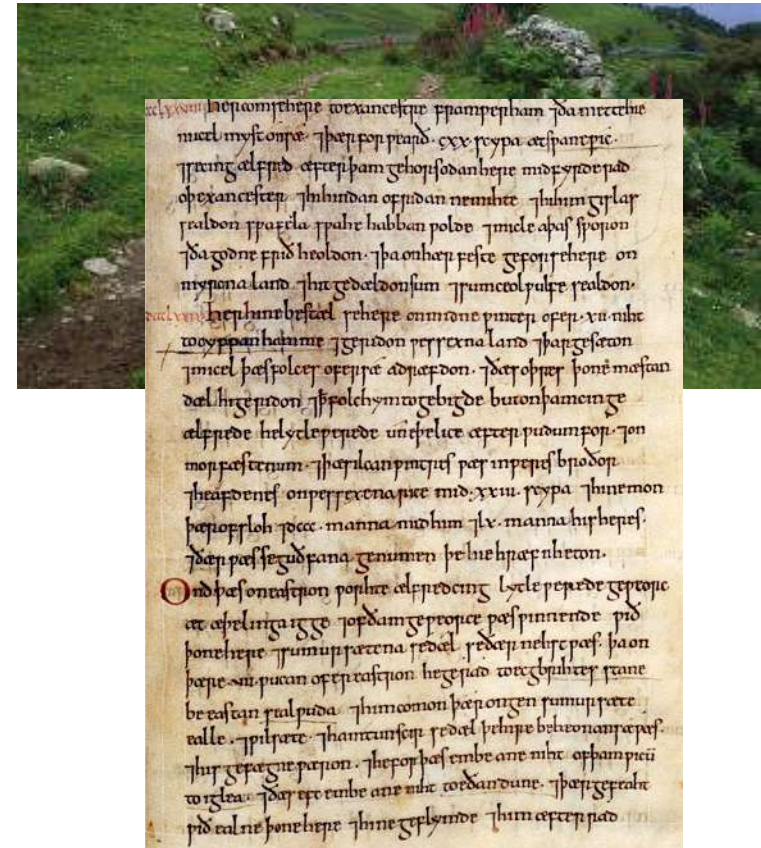 dccclxxvii her com se here to exancestre fram ƿerham ⁊ ða mette hie
micel myst on sæ ⁊ þær forƿearð cxx scypa æt sƿaneƿic
⁊ se cing ælfred æfter þam gehorsodan here mid fyrde rad
oþ exancester ⁊ hi hindan ofridan ne mihte ⁊ hi him gislas
sealdon sƿa fela sƿa he habban ƿolde ⁊ micle aþas sƿoron
⁊ ða godne frið heoldon ⁊ þa on hærfeste gefor se here on
myrcna land ⁊ hit gedældon sum ⁊ sum ceolƿulfe sealdon
dccclxxviii her hine bestæl se here on midne ƿinter ofer xii niht
to cyppanhamme ⁊ geridon ƿessexna land ⁊ þar gesæton
⁊ micel þæs folces ofer sæ adræfdon ⁊ ðæs oþres þone mæstan
dæl hi geridon ⁊ ꝥ folc hym to gebigde buton þam cinge
ælfrede he lytle ƿerede uneþelice æfter ƿudum for ⁊ on
mor fæstenum ⁊ þæs ilcan ƿintres ƿæs inƿeres broðor
⁊ healfdenes on ƿessexena rice mid xxiii scypa ⁊ hine mon
þær ofsloh ⁊ dccc manna mid him ⁊ lx manna his heres
⁊ ðær ƿæs se guðfana genumen þe hie hræfn heton
Ond þæs on eastron ƿorhte ælfred cing lytle ƿerede geƿeorc
æt æþelinga igge ⁊ of ðam geƿeorce ƿæs ƿinnende ƿið
þone here ⁊ sumursætena se dæl se ðær nehst ƿæs þa on
þære vii ƿucan ofer eastron he gerad to ecgbrihtes stane
be eastan sealƿuda ⁊ him comon þær ongen sumursæte
ealle ⁊ ƿilsæte ⁊ hamtunscir se dæl þe hire beheonan sæ ƿæs
⁊ his gefægne ƿæron ⁊ he for þæs embe ane niht of þam ƿicum
to iglea ⁊ ðæs eft embe ane niht to eðandune ⁊ þær gefeaht
ƿið ealne þone here ⁊ hine geflymde ⁊ him æfter rad